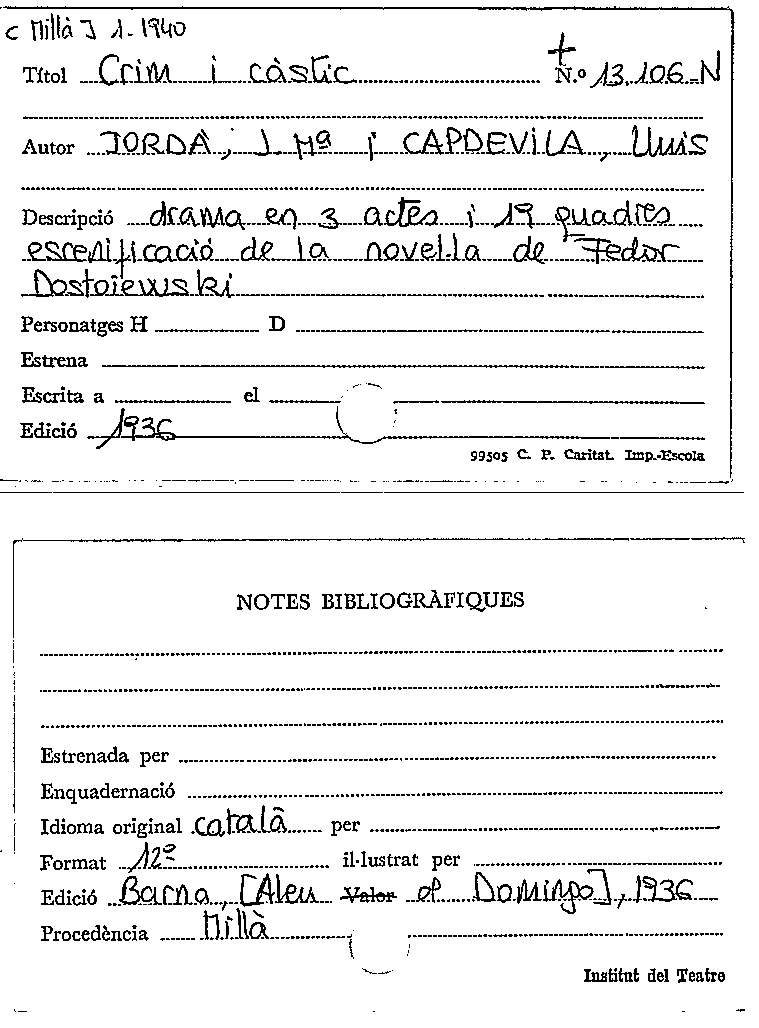 C Millà J 1-1940
Títol Crim i càstic N.º 13.106-N
Autor JORDÀ, J. Mª i CAPDEVILA, Lluis
Descripció drama en 3 actes i 19 quadres
escenificació de la novel·la de Fedor
Dostoiewski
Personatges H D
Estrena
Escrita a el
Edició 1936
99505 C. P. Caritat. Imp.-Escola
NOTES BIBLIOGRÀFIQUES
Estrenada per
Enquadernació
Idioma original català per
Format 12º il·lustrat per
Edició Barna, [Aleu Valor Domingo], 1936
Procedència Millà
Institut del Teatre